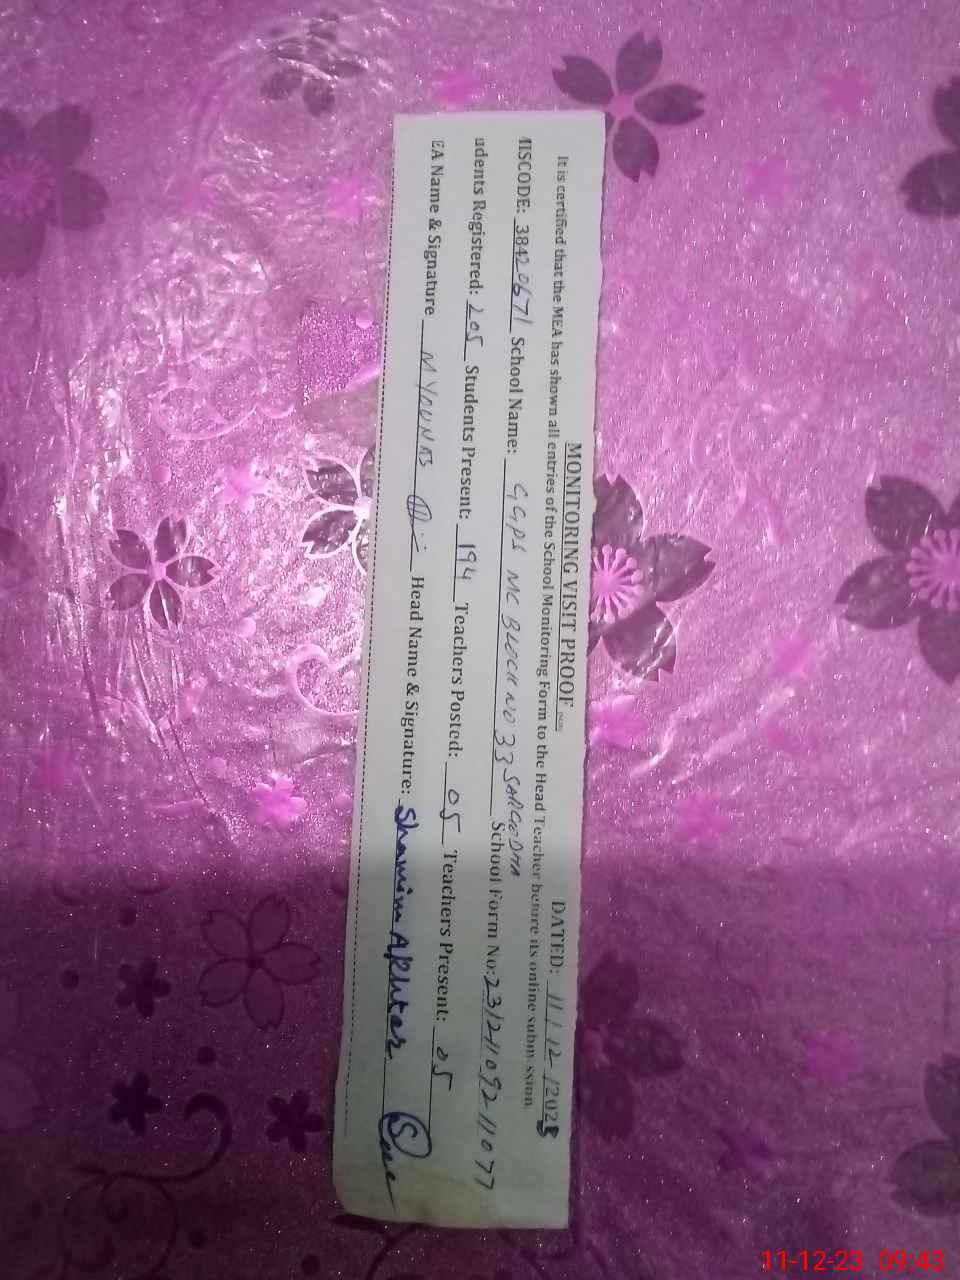 MONITORING VISIT PROOF DATED: 11/12/2023
It is certified that the MEA has shown all entries of the School Monitoring Form to the Head Teacher before its online submission
MISCODE: 38420671 School Name: GGPS MC BLOCK NO 33 SARGODHA School Form No: 23121109211077
udents Registered: 205 Students Present: 194 Teachers Posted: 05 Teachers Present: 05
EA Name & Signature M YOUNAS Head Name & Signature: Shamim Akhtar
11-12-23 09:43